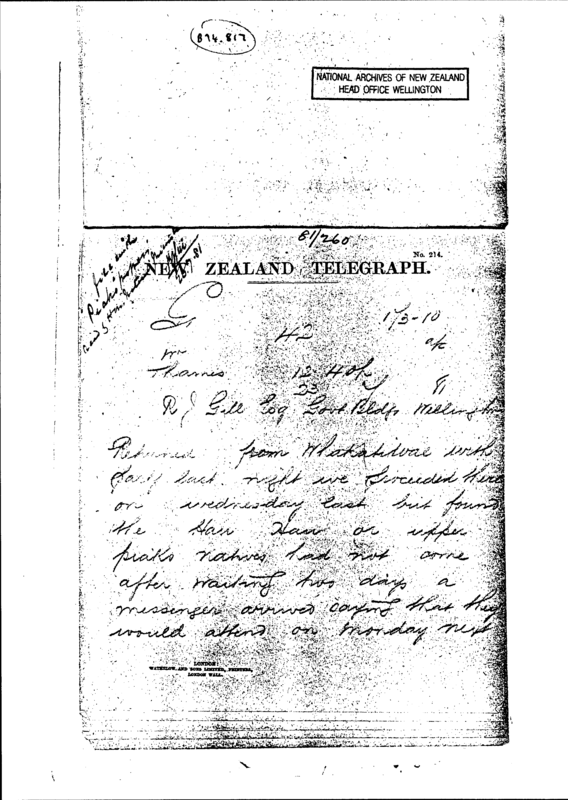 B74.817
NATIONAL ARCHIVES OF NEW ZEALAND
HEAD OFFICE WELLINGTON
81/260
No. 214.
NEW ZEALAND TELEGRAPH.
42
Thames
R J Gill Esq Govt Bldgs Wellington
Returned from Whakatiwai with
last night we proceeded there
on wednesday last but found
the Hau Hau or upper
piako natives had not come
after waiting two days a
messenger arrived saying that they
would attend on Monday next
LONDON:
WATERLOW AND SONS LIMITED, PRINTERS,
LONDON WALL.